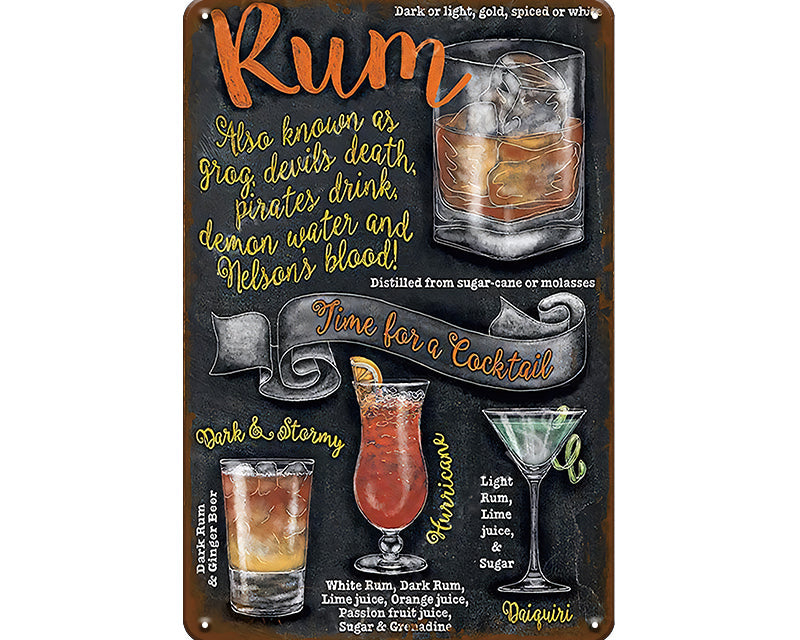 Dark or light, gold, spiced or white
Rum
Also known as
grog, devils death,
pirates drink,
demon water and
Nelson's blood!
Distilled from sugar-cane or molasses
Time for a Cocktail
Dark & Stormy
Dark Rum
& Ginger Beer
Hurricane
White Rum, Dark Rum,
Lime juice, Orange juice,
Passion fruit juice,
Sugar & Grenadine
Light
Rum,
Lime
juice,
&
Sugar
Daiquiri